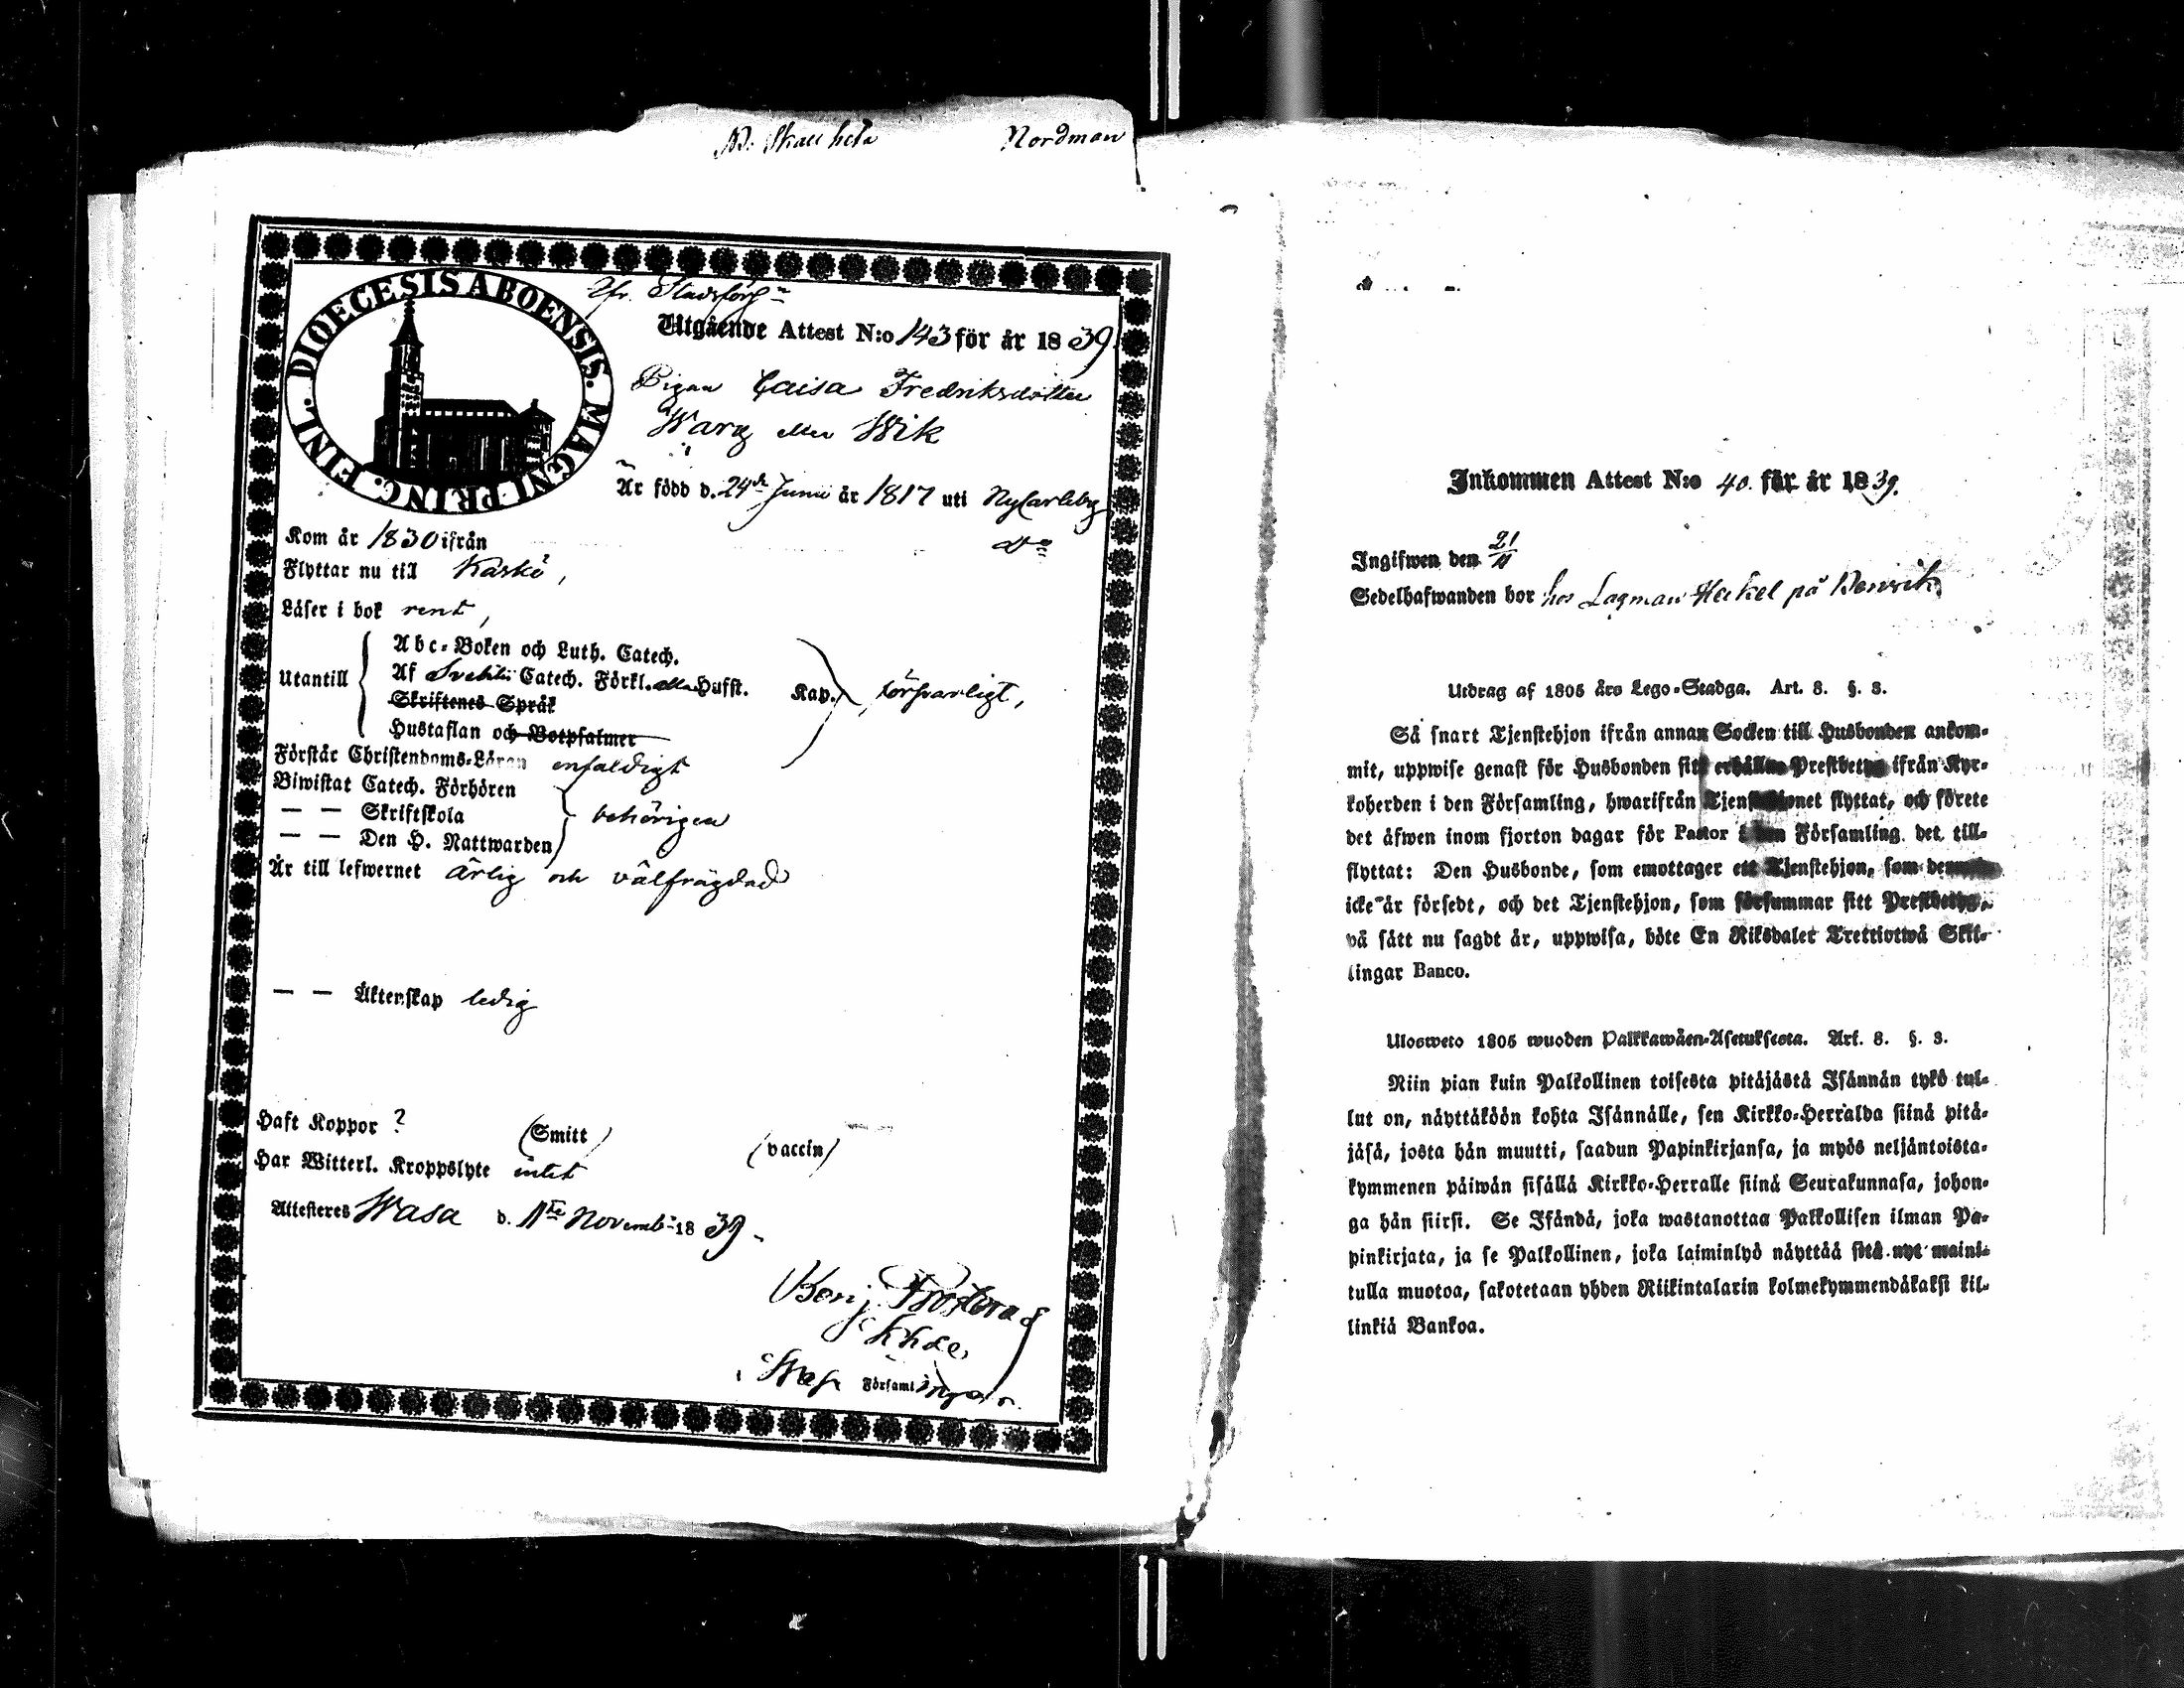 N. Skall heta Nordman
DIOECESIS ABOENSIS. MAGNI PRINC. FINL.
Utgående Attest N:o 143 för år 1839.
Pigan Caisa Fredriksdotter
Warg eller Wik
Är född d. 24de Junii år 1817 uti Nycarleby
Kom år 1830 ifrån do
Flyttar nu till Kaskö,
Läser i bok rent,
Utantill
Abc-Boken och Luth. Catech.
Af Svebilii Catech. Förkl. alla Hufst. Kap. försvarligt,
Skriftenes Språk
Hustaflan och Botpsalmer
Förstår Christendoms-Läran enfaldigt
Biwistat Catech. Förhören
— — Skriftskola behörigen
— — Den H. Nattwarden
Är till lefwernet ärlig och välfrägdad
— — Äktenskap ledig
Haft Koppor ? (Smitt) (vaccin)
Har Witterl. Kroppslyte intet
Attesteres Wasa d. 1ste Novemb. 1839.
Benj. Frosterus
Khde
Wasa Församlingar.
Inkommen Attest N:o 40. för år 1839.
Ingifwen den 21/11
Sedelhafwanden bor hos Lagman Heikel på Benvik
Utdrag af 1805 års Lego-Stadga. Art. 8. §. 3.
Så snart Tjenstehjon ifrån annan Socken till Husbonden ankom-
mit, uppwise genast för Husbonden sitt erhållna Prestbetyg ifrån Kyr-
koherden i den Församling, hwarifrån Tjenstehjonet flyttat, och förete
det äfwen inom fjorton dagar för Pastor i den Församling det till-
flyttat: Den Husbonde, som emottager ett Tjenstehjon, som dermed
icke är försedt, och det Tjenstehjon, som försummar sitt Prestbetyg,
på sätt nu sagdt är, uppwisa, böte En Riksdaler Trettiotwå Skil-
lingar Banco.
Ulosweto 1805 wuoden Palkkawäen-Asetuksesta. Art. 8. §. 3.
Niin pian kuin Palkollinen toisesta pitäjästä Isännän tykö tul-
lut on, näyttäköön kohta Isännälle, sen Kirkko-Herralda siinä pitä-
jäsä, josta hän muutti, saadun Papinkirjansa, ja myös neljäntoista-
kymmenen päiwän sisällä Kirkko-Herralle siinä Seurakunnasa, johon-
ga hän siirsi. Se Isändä, joka wastanottaa Palkollisen ilman Pa-
pinkirjata, ja se Palkollinen, joka laiminlyö näyttää sitä nyt maini-
tulla muotoa, sakotetaan yhden Riikintalarin kolmekymmendäkaksi kil-
linkiä Bankoa.